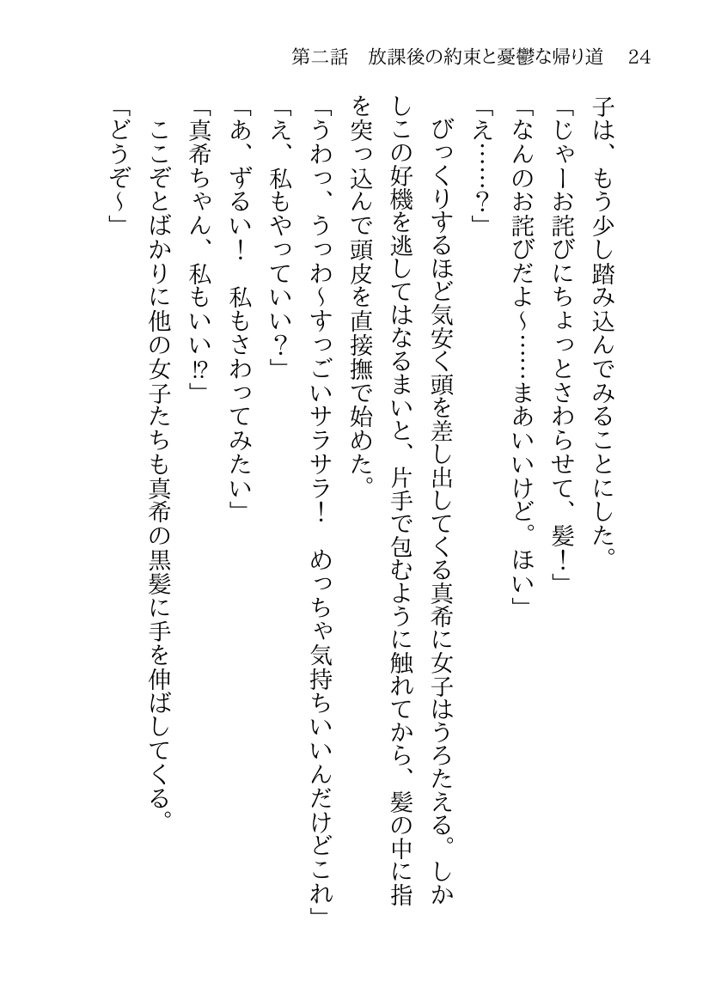 第二話　放課後の約束と憂鬱な帰り道　24
子は、もう少し踏み込んでみることにした。
「じゃーお詫びにちょっとさわらせて、髪！」
「なんのお詫びだよ～……まあいいけど。ほい」
「え……？」
　びっくりするほど気安く頭を差し出してくる真希に女子はうろたえる。しか
しこの好機を逃してはなるまいと、片手で包むように触れてから、髪の中に指
を突っ込んで頭皮を直接撫で始めた。
「うわっ、うっわ～すっごいサラサラ！　めっちゃ気持ちいいんだけどこれ」
「え、私もやっていい？」
「あ、ずるい！　私もさわってみたい」
「真希ちゃん、私もいい⁉」
　ここぞとばかりに他の女子たちも真希の黒髪に手を伸ばしてくる。
「どうぞ～」